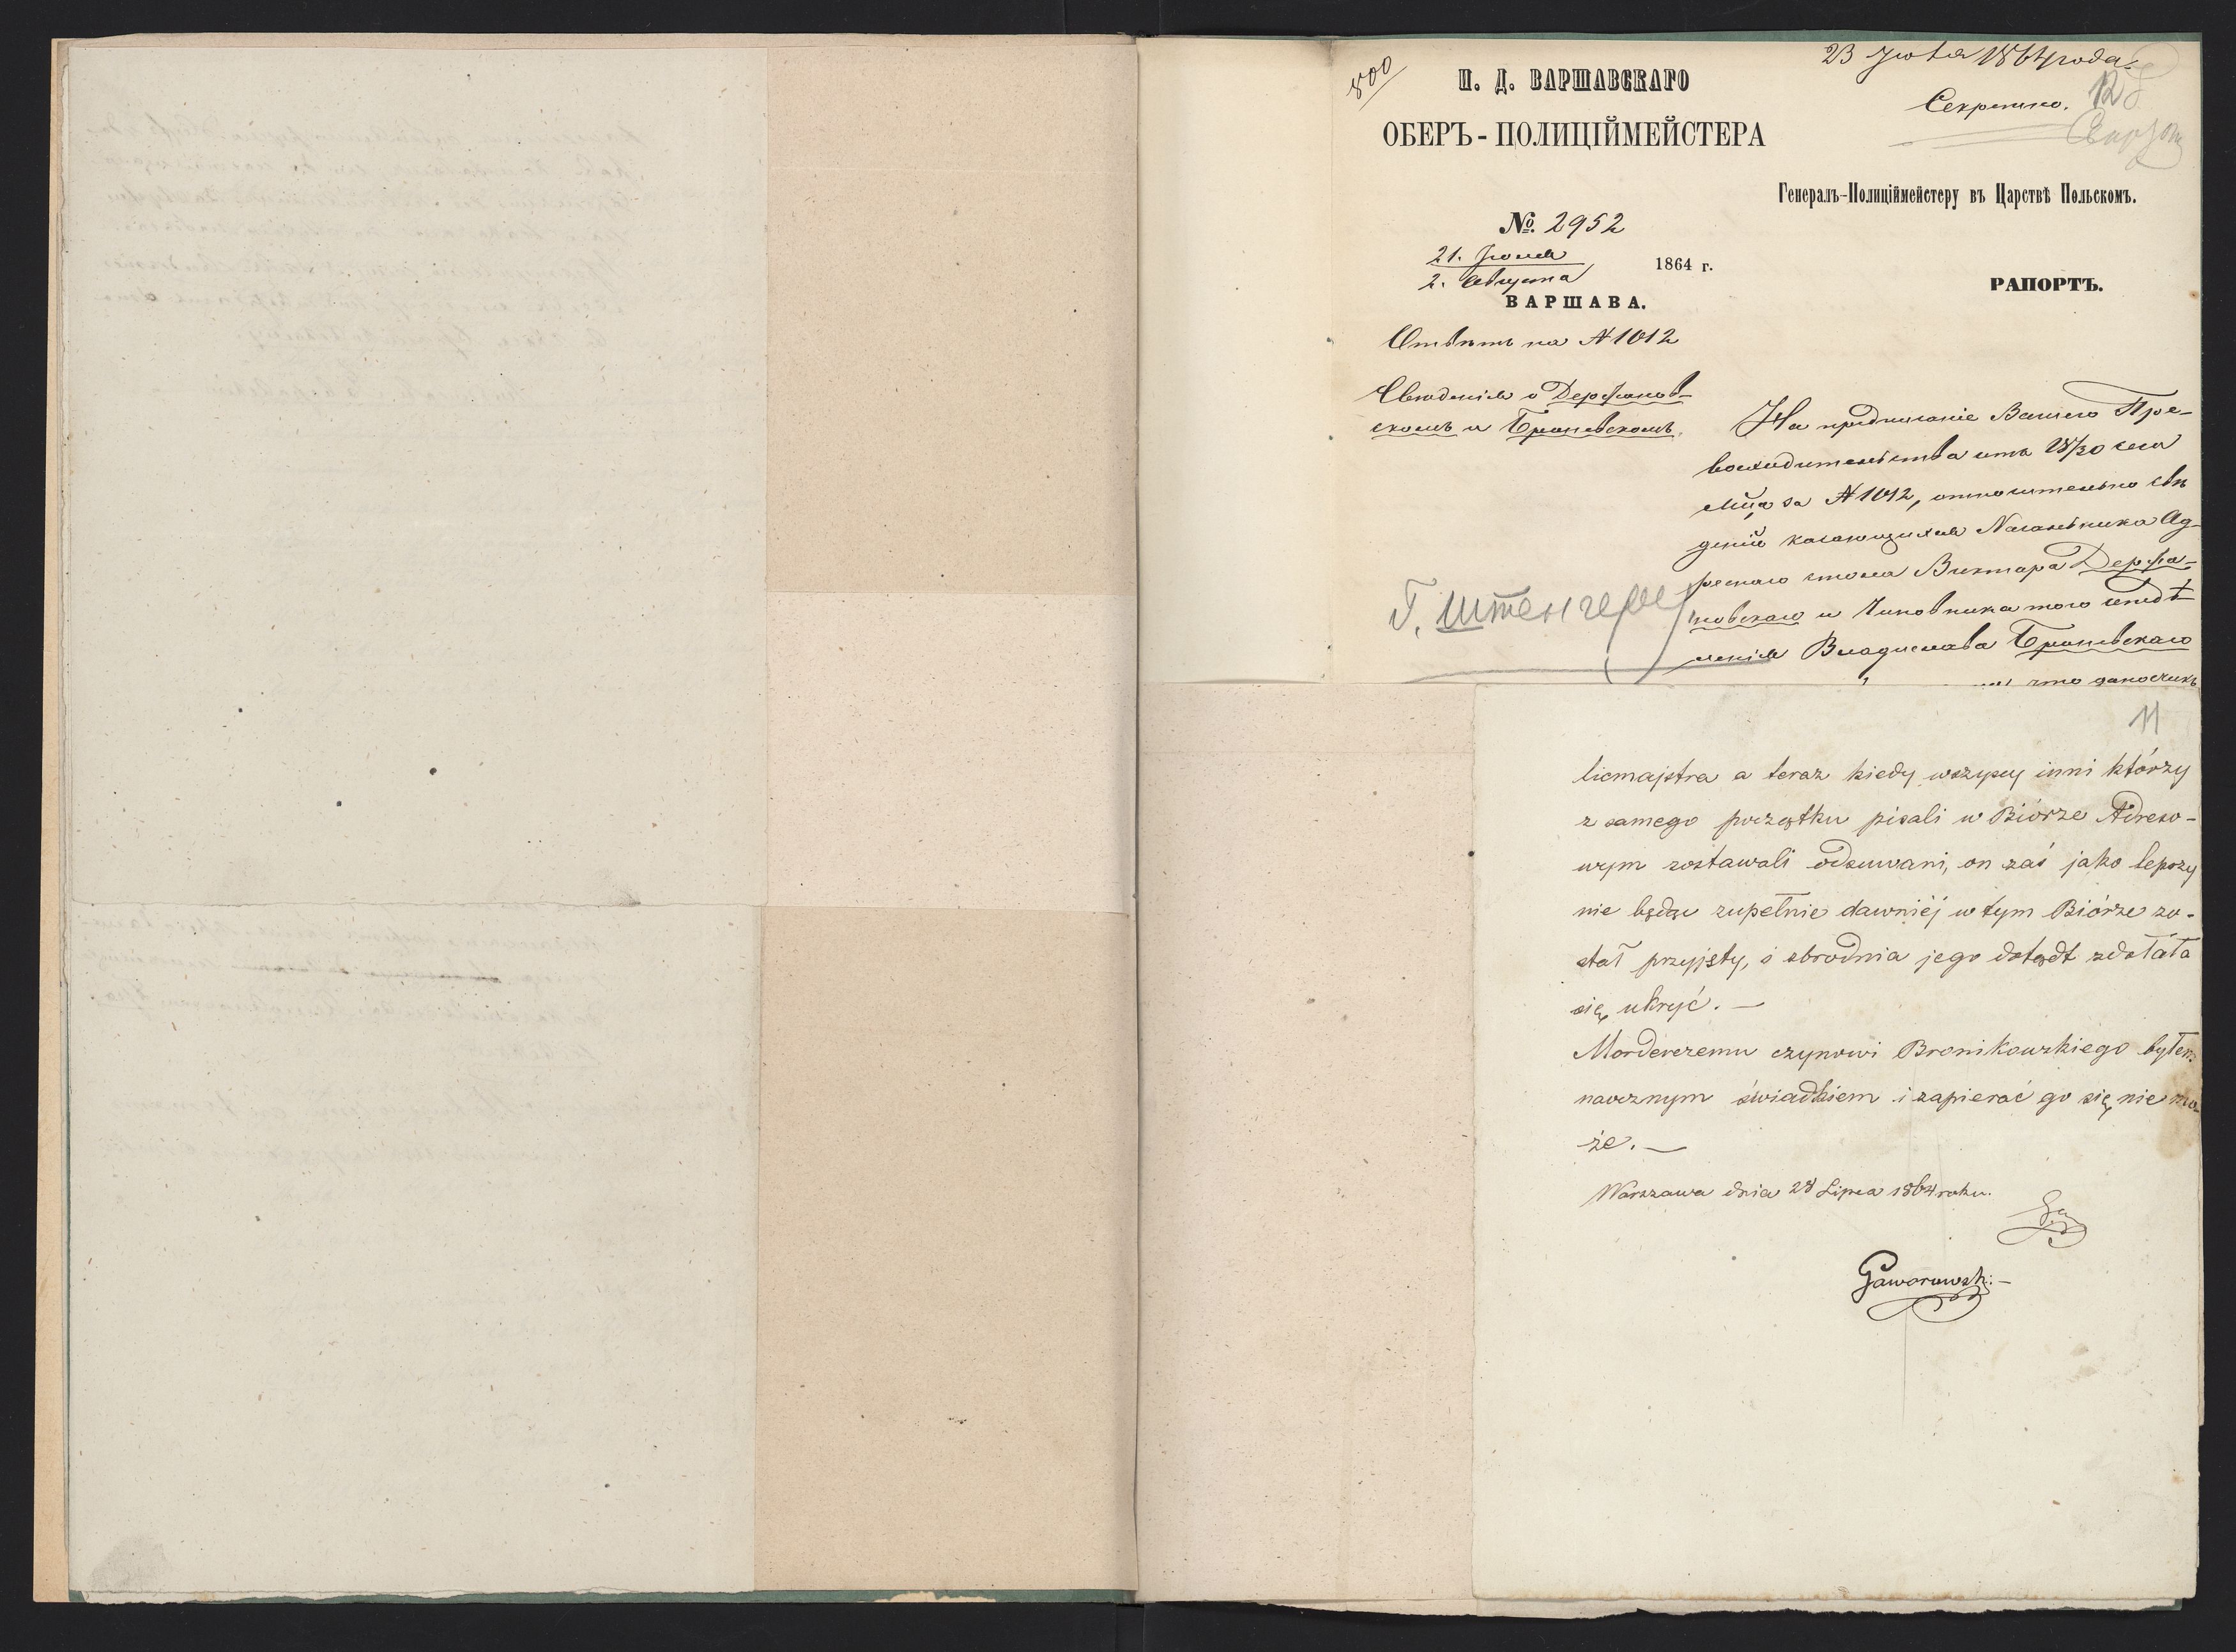 800
И. Д. ВАРШАВСКАГО
ОБЕРЪ-ПОЛИЦІЙМЕЙСТЕРА
№. 2952
21. Іюля
2. Августа
1864 г.
ВАРШАВА.
Отвѣтъ на № 1012
Свѣденія о Держанов-
скомъ и Броневскомъ.
Г. Штенгеру
23 Іюля 1864 года.
Секретно.
12
Генералъ-Полиційместеру въ Царствѣ Польскомъ.
РАПОРТЪ.
На предписаніе Вашего Пре-
восходительства отъ 18/30 сего
м̃ца за № 1012, относительно свѣ
деній касающихся Начальника Ад-
реснаго стола Виктора Держа-
новскаго и Чиновника того
Владислава Броневскаго
что доносчикъ
11
licmajstra a teraz kiedy wszyscy inni którzy
z samego początku pisali w Biórze Adreso-
wym zostawali odsuwani, on zaś jako lepszy
nie będąc zupełnie dawniéj w tym Biórze zo-
stał przyjęty, i zbrodnia jego dotądt zdołała
się ukryć. —
Morderczemu czynowi Bronikowskiego byłem
naocznym świadkiem i zapierać go się nie mo-
że. —
Warszawa dnia 28 Lipca 1864 roku.
Gaworowski —